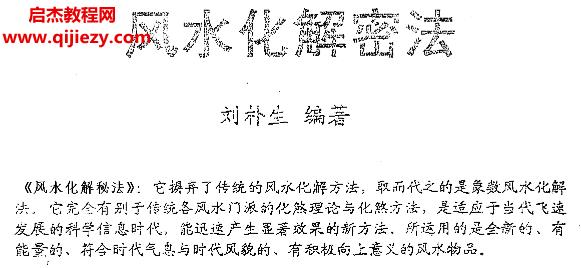 启杰教程网
www.qijiezy.com
风水化解密法
刘朴生 编著
《风水化解秘法》：它摒弃了传统的风水化解方法，取而代之的是象数风水化解
法。它完全有别于传统各风水门派的化煞理论与化煞方法，是适应于当代飞速
发展的科学信息时代，能迅速产生显著效果的新方法。所运用的是全新的、有
能量的、符合时代气息与时代风貌的、有积极向上意义的风水物品。